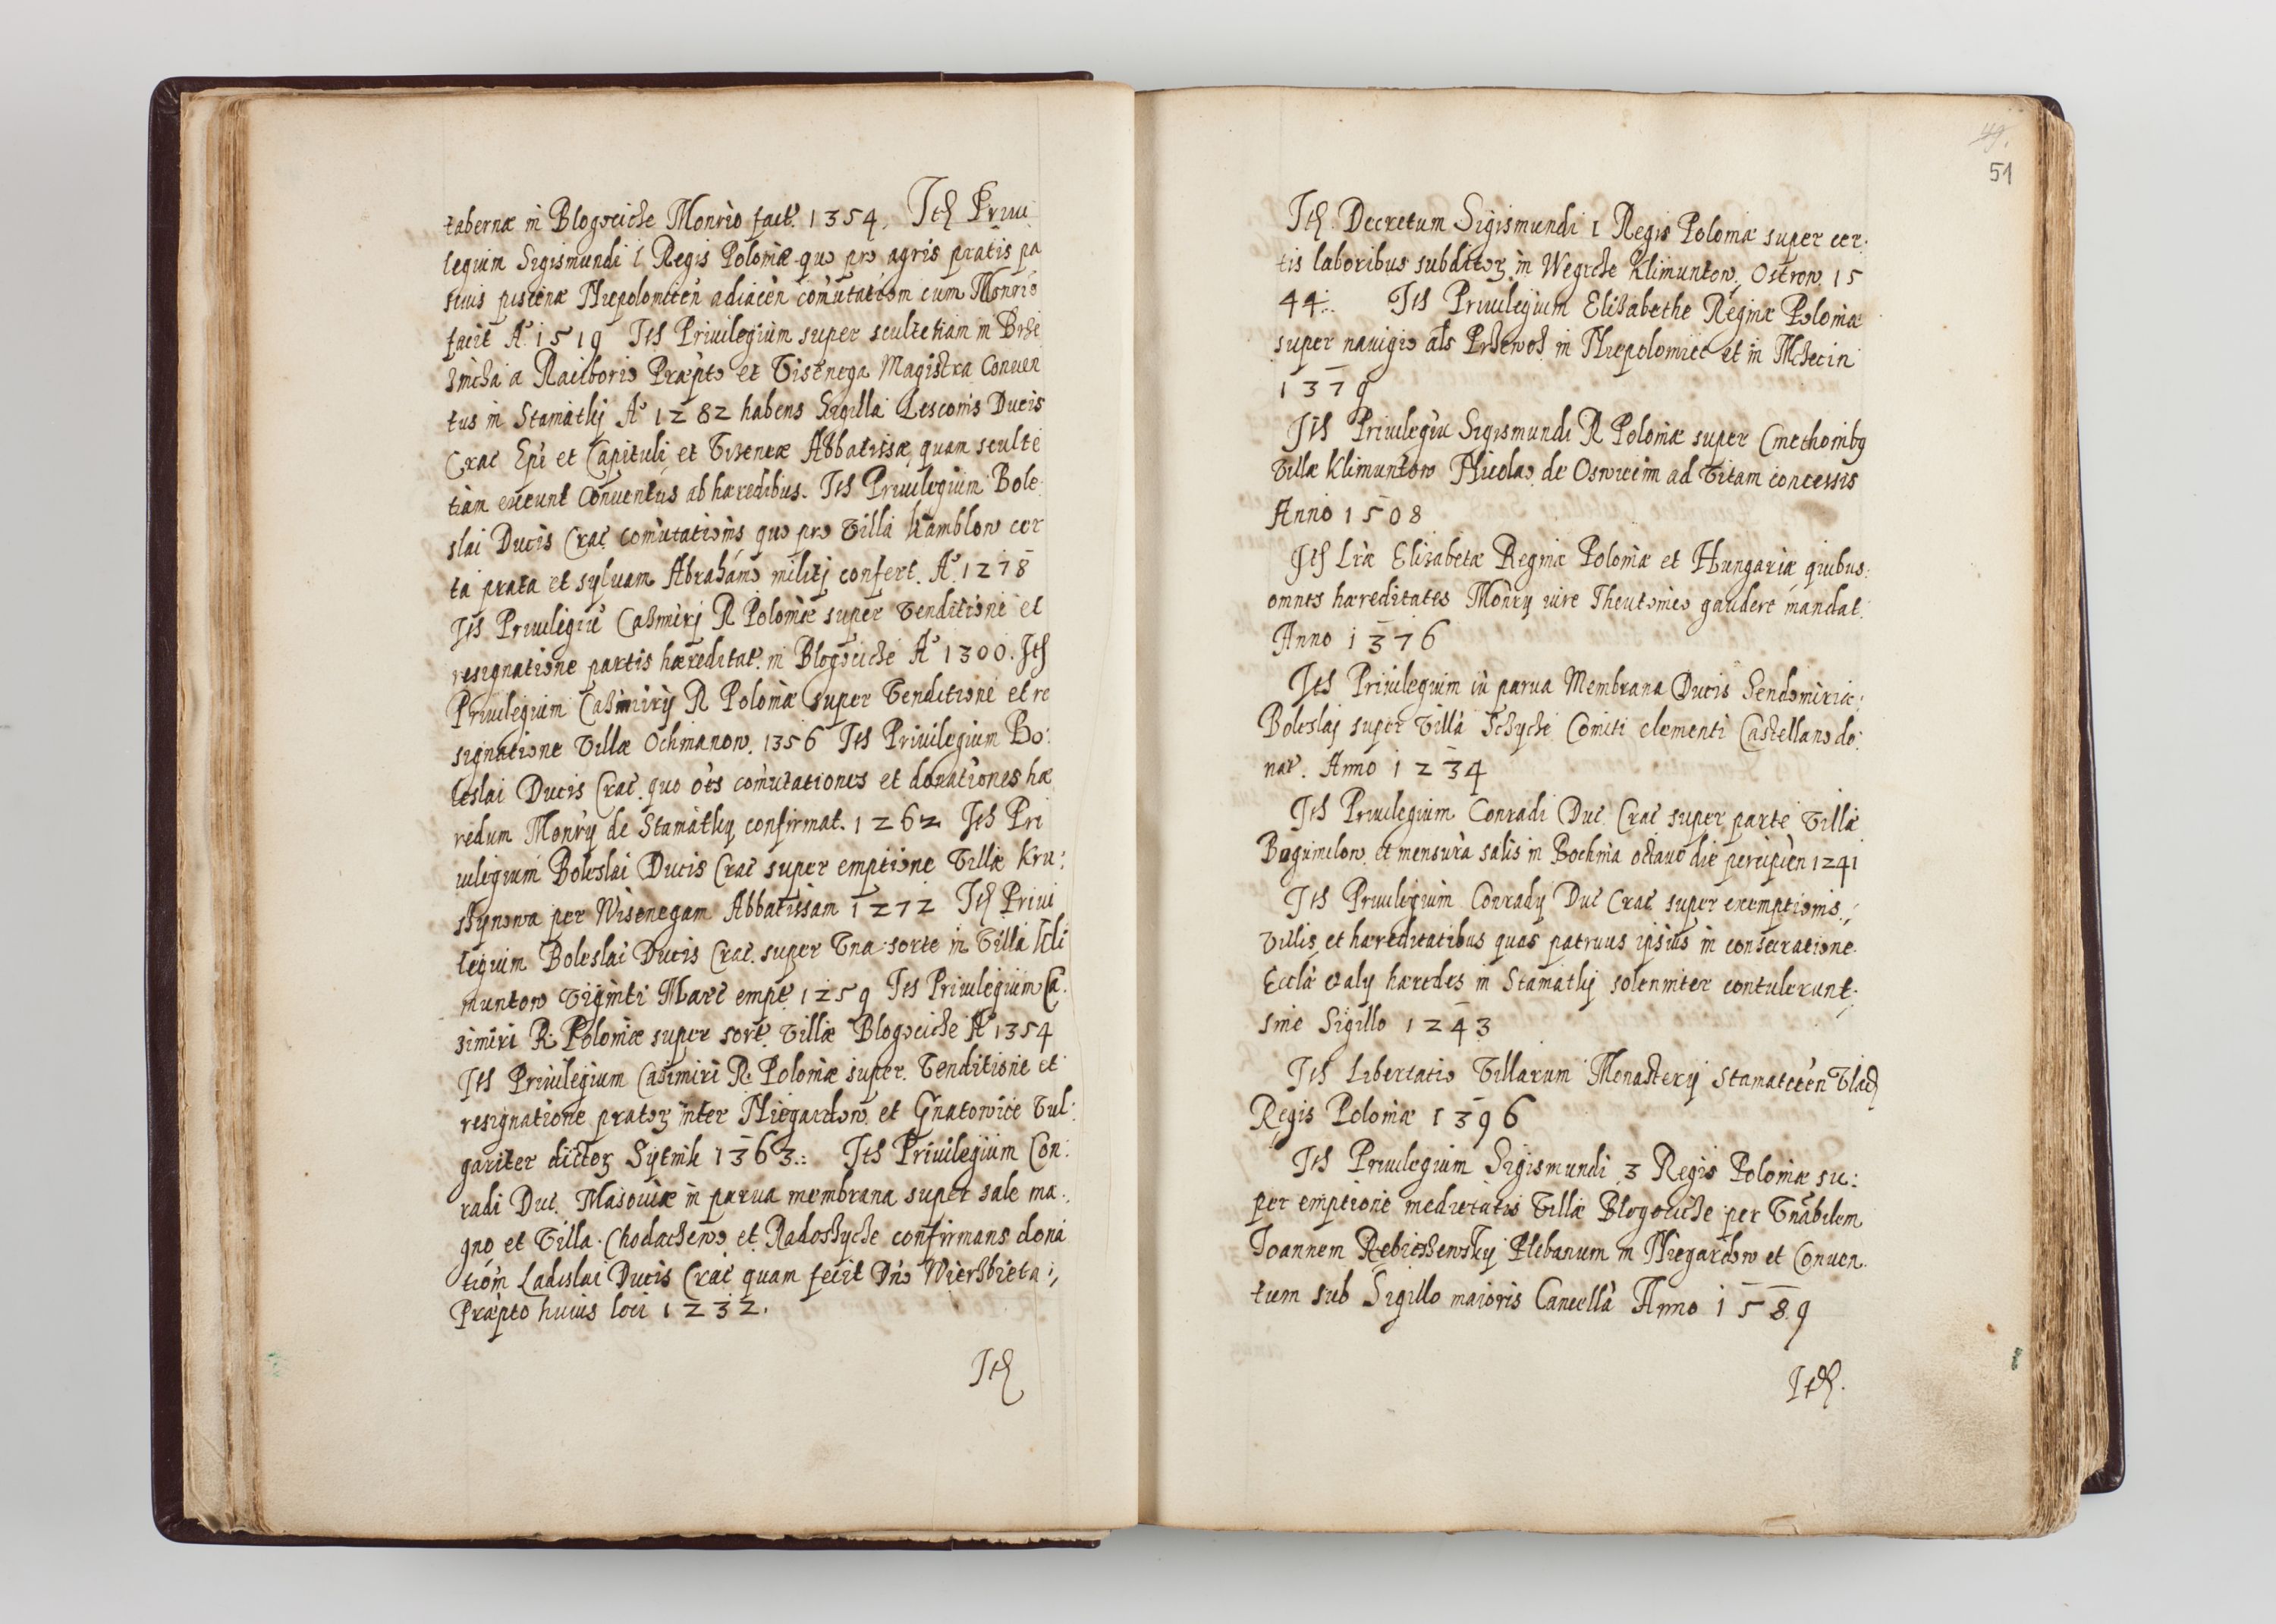 tabernæ in Blogociche Monrio fact. 1354. Ith Priui
legium Sigismundi I Regis Poloniæ quo pro agris pratis pa
scuis piscinæ Niepolomicen adiacen comutatiom cum Monrio
facit A° 1519 Ith Priuilegium super scultetiam in Brze
zincha a Raciborio Præpto et Visenega Magistra Conuen
tus in Staniatky A° 1282 habens Sigilla Lesconis Ducis
Crac Epi et Capituli et Visenæ Abbatissæ, quam sculte
tiam emunt Conuentus ab hæredibus. Ith Priuilegium Bole
slai Ducis Crac comutationis quo pro Villa Kamblow cer
ta prata et syluam Abrahamo militi confert. A° 1278
Ith Priuilegiu Casimirj R Poloniæ super Venditione et
resignatione partis hæreditat. in Blogociche A° 1300. Ith
Priuilegium Casimiry R Poloniæ super Venditione et re
signatione Villæ Ochmanow. 1356 Ith Priuilegium Bo:
leslai Ducis Crac. quo oes comutationes et donationes hæ
redum Monry de Staniatky confirmat. 1262 Ith Pri
uilegium Boleslai Ducis Crac super emptione Villæ Kru:
shynowa per Wisenegam Abbatissam 1272 Ith Priui
legium Boleslai Ducis Crac. super Vna sorte in Villa Kli
muntow Viginti Marc empt 1259 Ith Priuilegium Ca.
simiri R. Poloniæ super sort. Villæ Blogociche A° 1354
Ith Priuilegium Casimiri R. Poloniæ super. Venditione et
resignatione pratoꝝ inter Niegardow. et Gnatowice Vul:
gariter dictoꝝ Sytnik 1363.: Ith Priuilegium Con:
radi Duc. Masouiæ in parua membrana super sale ma.
gno et Villa Chodachewo et Radoshyche confirmans dona
tiom Ladislai Ducis Crac quam fecit Dno Wierzbieta
Præpto huius loci 1232.
Ith
49.
51
Ith. Decretum Sigismundi I Regis Poloniæ super cer.
tis laboribus subditoꝝ in Wegrche Klimuntow, Ostrow. 15
44.: Ith Priuilegium Elisabethe Reginæ Poloniæ
super nauigio als Przewos in Niepolomice et in Mchecin
1379
Ith Priuilegiu Sigismundi R Poloniæ super Cmethonibꝯ
Villæ Klimuntow Nicolao de Oswicim ad Vitam concessis
Anno 1508
Ith Lræ Elizabetæ Reginæ Poloniæ et Hungariæ quibus.
omnes hæreditates Monry iure Theutonico gaudere mandat.
Anno 1376
Ith Priuilegium in parua Membrana Ducis Sendomiriæ.
Boleslaj super Villa Schyche Comiti clementi Castellano do.
nat. Anno 1234
Ith Priuilegium Conradi Duc. Crac super parte Villæ
Bogumilow. et mensura salis in Bochnia octauo die percipien 1241
Ith Priuilegium Conrady Duc Crac super exemptionis.
Villis et hæreditatibus quas patruus ipsius in consecratione.
Eccla e aly hæredes in Staniatky solenniter contulerunt.
sine Sigillo 1243
Ith Libertatio Villarum Monastery Staniatecen Vlad
Regis Poloniæ 1396
Ith Priuilegium Sigismundi 3 Regis Poloniæ su:
per emptione medietatis Villæ Blogociche per Vnabilem
Joannem Rebieshewsky Plebanum in Niegardow et Conuen.
tum sub Sigillo maioris Cancella Anno 1589
Ith.